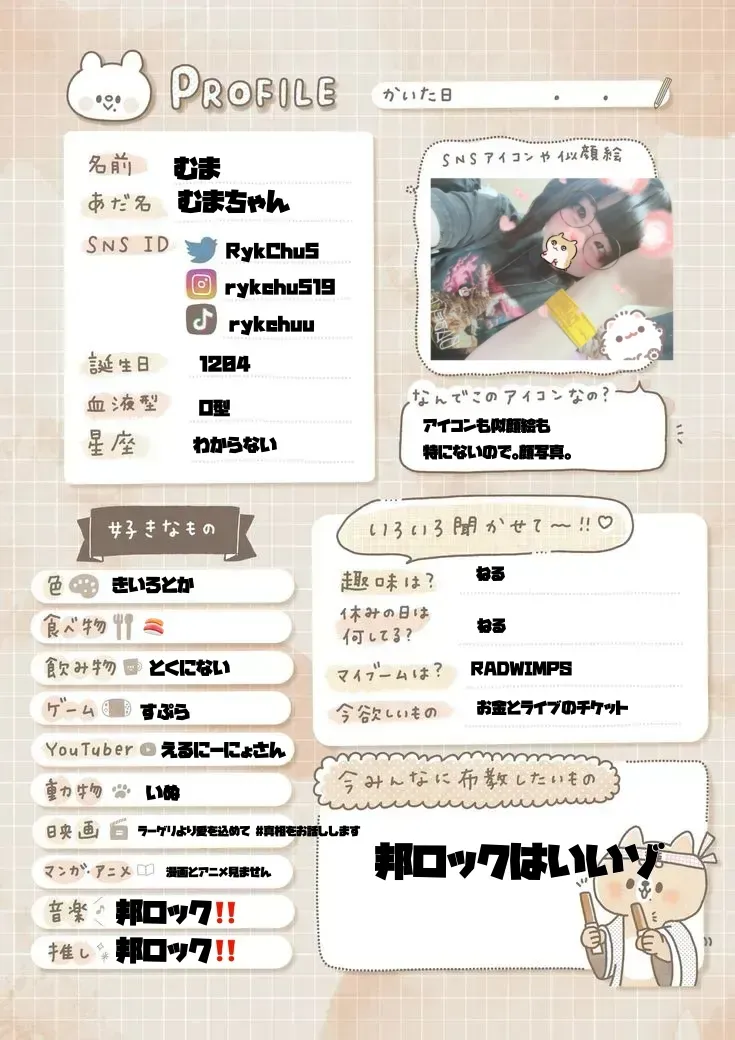 PROFILE
かいた日 ・ ・
名前 むま
あだ名 むまちゃん
SNS ID
RykChu5
rykchu519
rykchuu
誕生日 1204
血液型 O型
星座 わからない
SNSアイコンや似顔絵
なんでこのアイコンなの?
アイコンも似顔絵も
特にないので。顔写真。
好きなもの
色 きいろとか
食べ物 🍣
飲み物 とくにない
ゲーム すぷら
YouTuber えるにーにょさん
動物 いぬ
映画 ラーゲリより愛を込めて #真相をお話しします
マンガ・アニメ 漫画とアニメ見ません
音楽 邦ロック‼️
推し 邦ロック‼️
いろいろ聞かせて〜!!♡
趣味は? ねる
休みの日は
何してる? ねる
マイブームは? RADWIMPS
今欲しいもの お金とライブのチケット
今みんなに布教したいもの
邦ロックはいいゾ